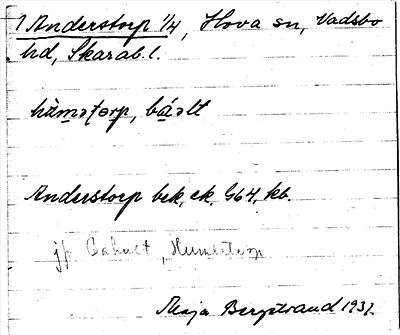 1 Anderstorp 1/4, Hova sn, Vadsbo
hd, Skarab. l.
hùmətərp, bá əlt
Anderstorp bek, ek. 964, kb.
jfr Bahult, Humletorp
Maja Bergstrand 1937.